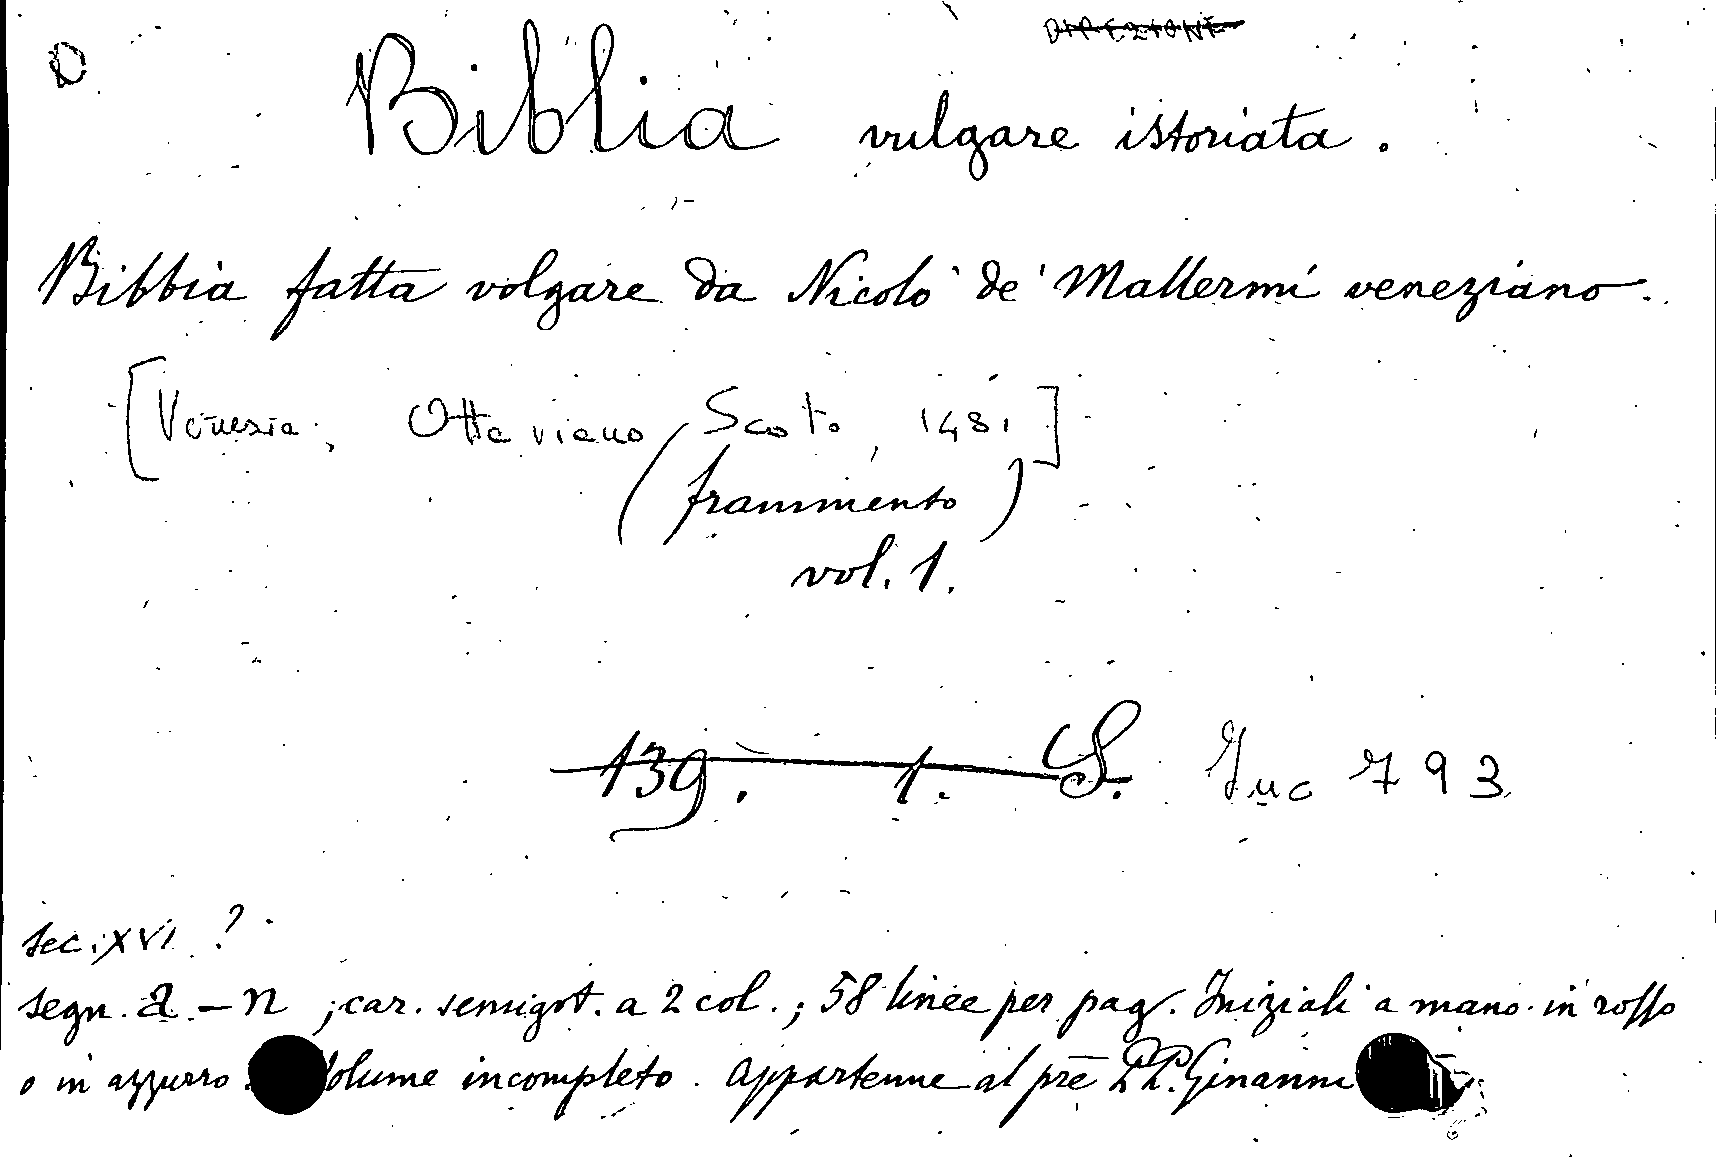 DIREZIONE
D
Biblia vulgare istoriata.
Bibbia fatta volgare da Nicolò de' Mallermi veneziano.
[Venezia, Ottaviano Scoto, 1481]
(frammento)
vol. 1.
139. 1. S. Inc 793
sec. XVI ?
segn. a - n ; car. semigot. a 2 col. ; 58 linee per pag. Iniziali a mano in rosso
o in azzurro. Volume incompleto. Appartenne al prē P.P. Ginanni